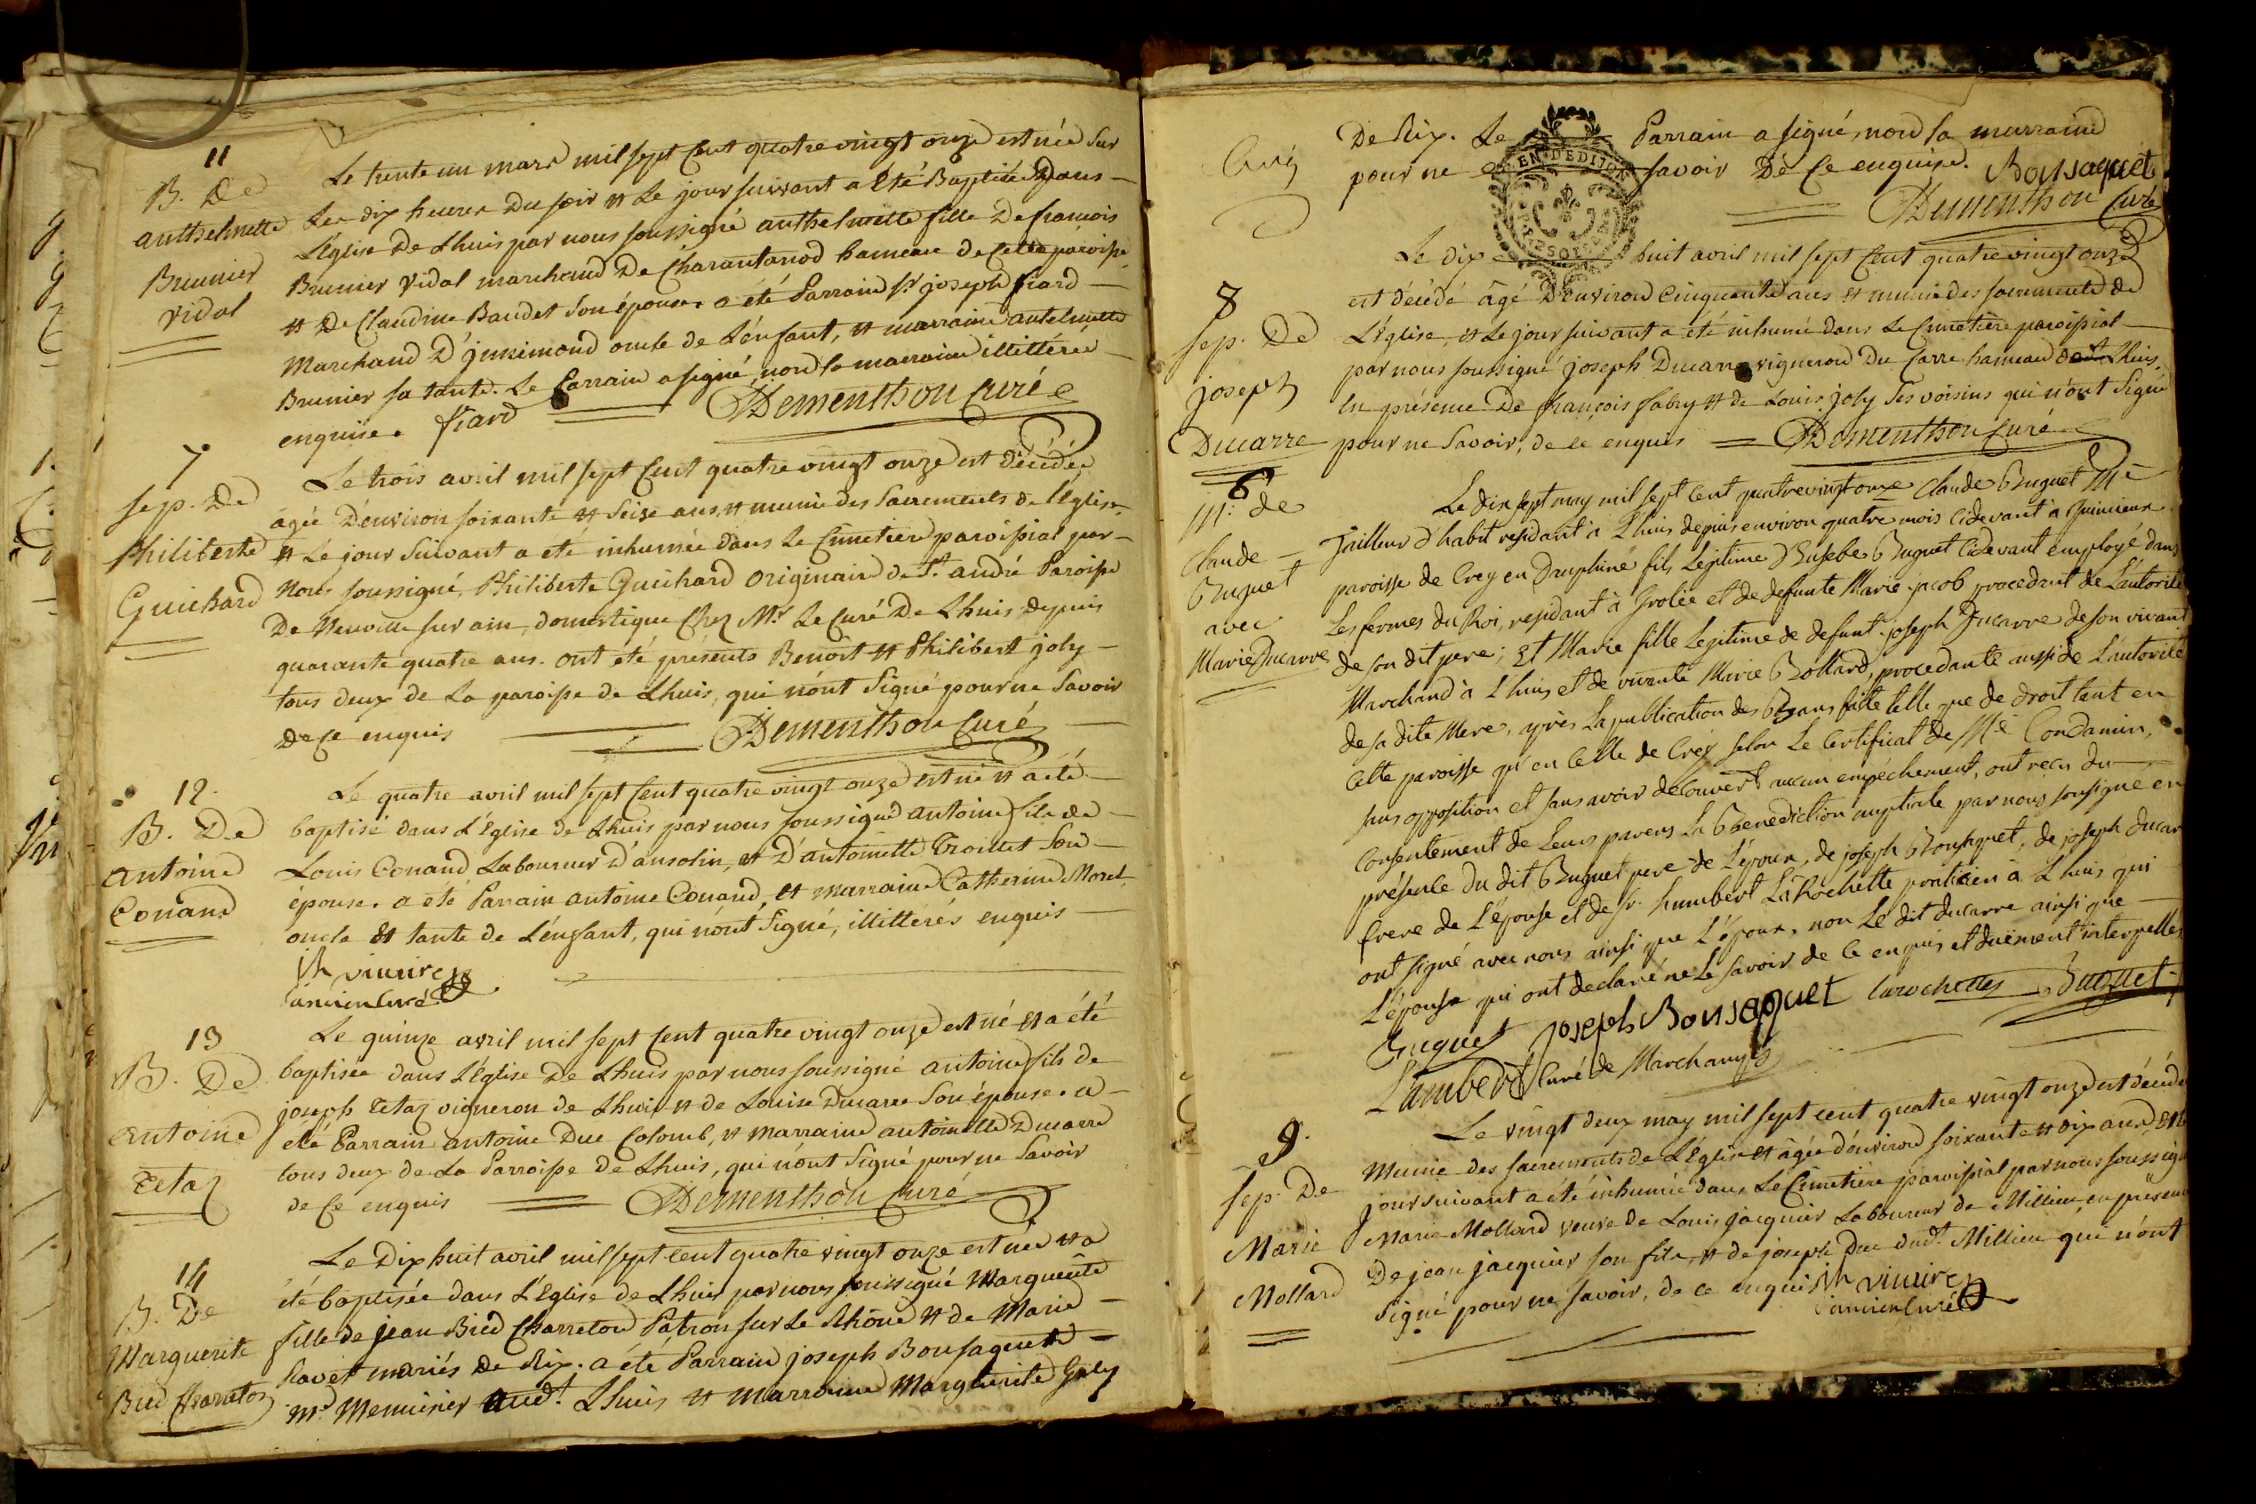 11
B. De
anthelmette
Brunier
vidal
Le trente un mars mil sept Cent quatre vingt onze est née sur
Les dix heures Du soir et Le jour suivant a été Baptisée Dans
L'église De Lhuis par nous soussigné anthelmette fille De francois
Brunier vidal marchand De Charantonod hameau de Cette paroisse
et De Claudine Baudet son épouse. a été Parrain sr joseph fiard
Marchand D'jnnimond oncle de L'enfant, et marraine antelmette
Brunier sa tante. Le Parrain a signé, non la marraine illitérée
enquise. fiard Dementhon Curé
7.
sep. De
Philiberte
Guichard
Le trois avril mil sept Cent quatre vingt onze est Décédée
âgée D'environ soixante et seise ans, et munie des Sacrements de l'église
et Le jour suivant a eté inhumée dans Le Cimetiere paroissial par
Nous soussigné, Philiberte Guichard originaire de St. andré Paroisse
De Neuville sur ain, domestique Chez Mr. Le Curé De Lhuis depuis
quarante quatre ans. ont été présents Benoit et Philibert joly
tous deux de La paroisse de Lhuis, qui n'ont signé pour ne Savoir
De Ce enquis Dementhon Curé
12.
B. De
antoine
Conand
Le quatre avril mil sept Cent quatre vingt onze est né et a été
baptisé dans L'église de Lhuis par nous soussigné antoine fils de
Louis Conand Laboureur D'ansolin, et D'antoinette Troillet son
épouse. a été Parrain antoine Conand, et marraine Catherine Moret,
oncle et tante de L'enfant, qui n'ont signé, illittérés enquis
ancien Curé
13
B. De
antoine
Tetaz
Le quinze avril mil sept Cent quatre vingt onze est né et a été
baptisée dans L'église De Lhuis par nous soussigné antoine fils de
joseph Tetaz vigneron de Lhuis et de Louise Ducarre son épouse. a
été Parrain antoine Duc Colomb, et marraine antoinette Ducarre
tous deux de La Parroisse de Lhuis, qui n'ont signé pour ne Savoir
de Ce enquis Dementhon Curé
14
B. De
Marguerite
Bied Charreton
Le Dix huit avril mil sept cent quatre vingt onze est née et a
été baptisée dans L'église de Lhuis par nous soussigné Marguerite
fille de jean Bied Charreton Patron sur Le Rhône et de Marie
havet mariés de Rix. a été Parrain joseph Bonsaquet
md Menuisier audt. Lhuis et marraine Marguerite Goly
De Rix. Le Parrain a signé, non la marraine
pour ne savoir De Ce enquise. Bonsaquet
Dementhon Curé
EN. DEDIJON
8
sep. De
joseph
Ducarre
Le dix huit avril mil sept Cent quatre vingt onze
est décédé âgé D'environ Cinquante ans et muni des sacrements de
L'église, et Le jour suivant a été inhumé dans Le Cimetiere paroissial
par nous soussigné joseph Ducarre vigneron Du Carre hameau de Lhuis
En présence De françois fabry et de Louis joly ses voisins qui n'ont Signé
pour ne savoir, de ce enquis Dementhon Curé
6
m. de
Claude
Buguet
avec
Marie Ducarre
Le dix sept may mil sept cent quatre vingt onze Claude Buguet Me
Tailleur d'habit residant à Lhuis depuis environ quatre mois cidevant à quirieux
paroisse de Crey en Dauphiné fils Legitime d'Eusebe Buguet Cidevant employé dans
Les fermes du Roi, residant à Grolée et de defunte Marie jacob, procedant de L'autorité
de son dit pere; et Marie fille Legitime de defunt joseph Ducarre de son vivant
Marchand à Lhuis et de vivante Marie Bottard, procedante aussi de L'autorité
de sa dite Mere, après La publication des Bans faite telle que de droit tant en
Cette paroisse qu'en Celle de Crey selon Le Certificat de Mre Condamin,
sans opposition et sans avoir découvert aucun empéchement, ont recu du
Consentement de Leurs parens La Benediction nuptiale par nous sousigné en
présence du dit Buguet pere de L'époux, de joseph Bonsaquet, de joseph Ducar
frere de L'épouse et de sr. humbert LaRochette praticien à Lhuis qui
ont signé avec nous ainsi que L'époux, non Le dit Ducarre ainsi que
L'épouse qui ont declaré ne Le savoir de Ce enquis et duëment interpellés
Buguet joseph Bonsaquet Larochette Buguet
Lambert Curé de Marchamp
9.
sep. De
Marie
Mollard
Le vingt deux may mil sept cent quatre vingt onze est décédée
Munie des sacrements de L'église et âgée d'environ soixante et dix ans, et le
jour suivant a été inhumée dans Le Cimetiere paroissial par nous soussigné
Marie Mollard veuve de Louis jacquier Laboureur de Millieu, en présence
De jean jacquier son fils, et de joseph Duc dudt. Millieu qui n'ont
signé pour ne savoir, de ce enquis
ancien Curé